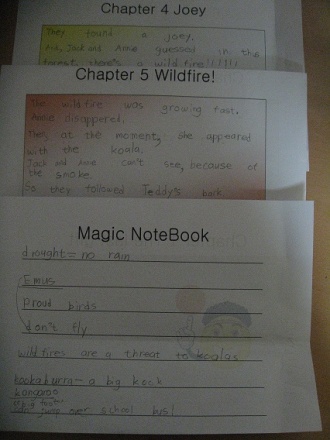 Chapter 4 Joey
They found a joey.
And, Jack and Annie guessed in the
forest, there's a wild fire!!!!!!
Chapter 5 Wildfire!
The wildfire was growing fast.
Annie disappeared.
They, at the moment, she appeared
with the koala.
Jack and Annie can't see, because of
the smoke.
So they followed Teddy's bark
Magic NoteBook
drought = no rain
Emus
Proud birds
don't fly
wildfires are a threat to koalas
kookaburra - a big
kangaroo
jump over school bus!